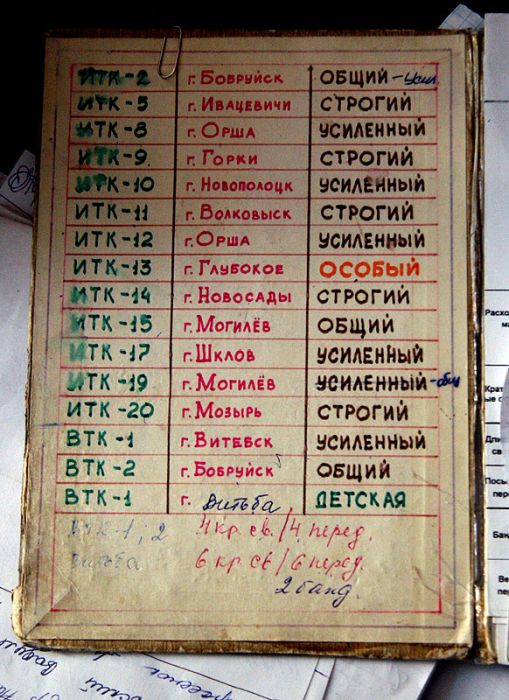 ИТК-2 г. Бобруйск ОБЩИЙ - усил.
ИТК-5 г. Ивацевичи СТРОГИЙ
ИТК-8 г. Орша УСИЛЕННЫЙ
ИТК-9. г. Горки СТРОГИЙ
ИТК-10 г. Новополоцк УСИЛЕННЫЙ
ИТК-11 г. Волковыск СТРОГИЙ
ИТК-12 г. Орша УСИЛЕННЫЙ
ИТК-13 г. Глубокое ОСОБЫЙ
ИТК-14 г. Новосады СТРОГИЙ
ИТК-15 г. Могилёв ОБЩИЙ
ИТК-17 г. Шклов УСИЛЕННЫЙ
ИТК-19 г. Могилёв УСИЛЕННЫЙ - общ
ИТК-20 г. Мозырь СТРОГИЙ
ВТК-1 г. Витебск УСИЛЕННЫЙ
ВТК-2 г. Бобруйск ОБЩИЙ
ВТК-1 г. Витьба ДЕТСКАЯ
ВТК-1, 2 4 кр. св. / 4 перед.
Витьба 6 кр. св / 6 перед.
2 банд.